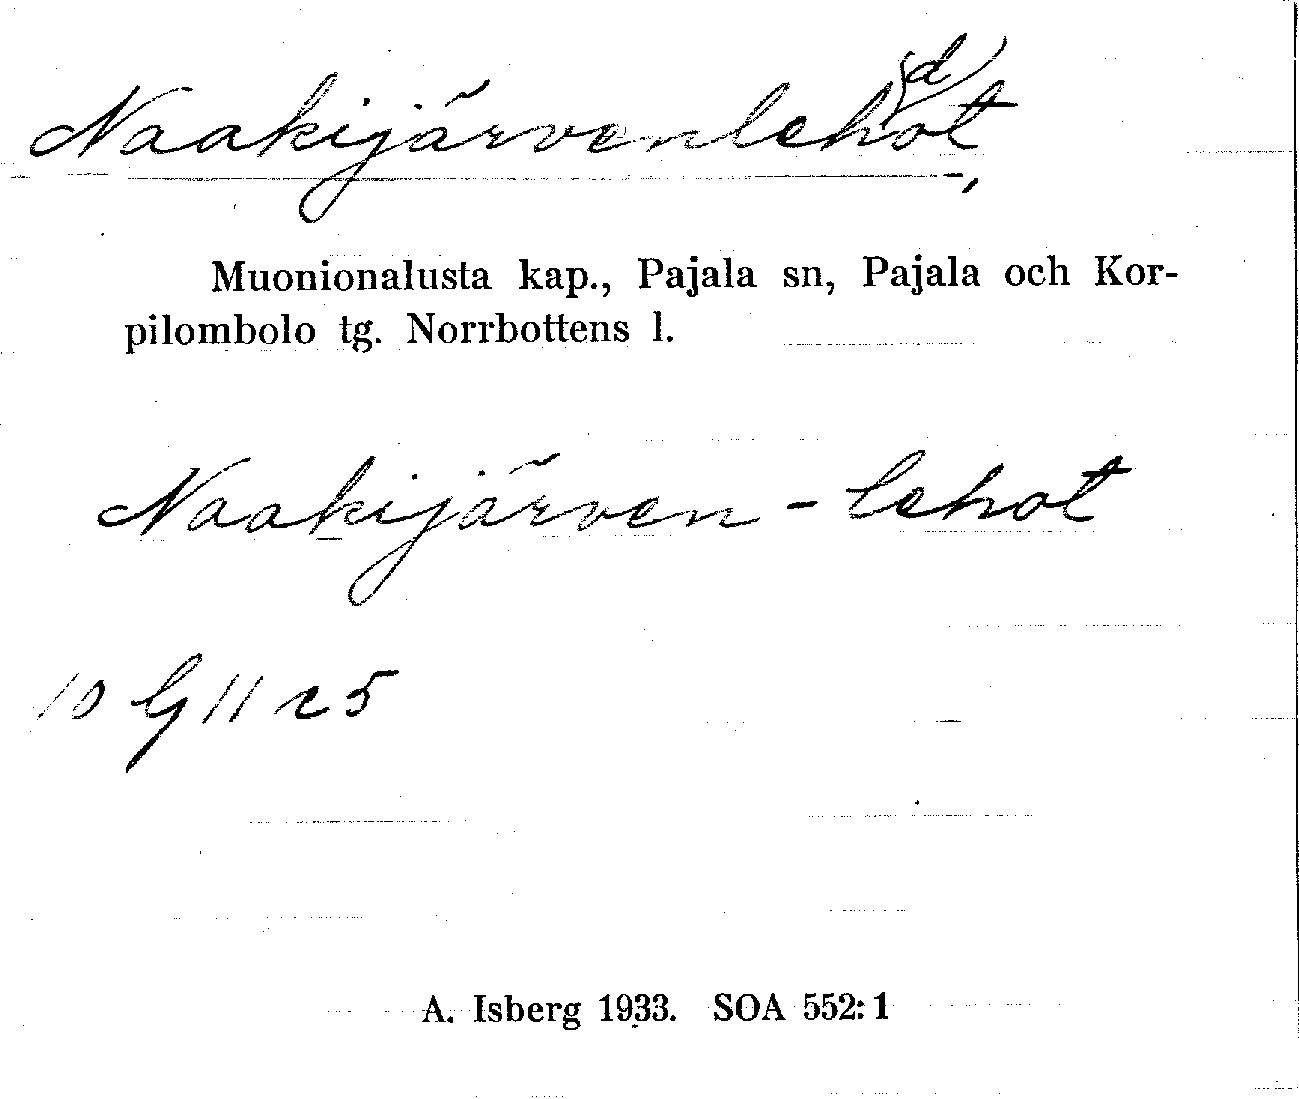 Naakijärvenleho(d)t,
Muonionalusta kap., Pajala sn, Pajala och Kor-
pilombolo tg. Norrbottens l.
Naakijärven - lehot
10 G 11 r 5
A. Isberg 1933. SOA 552:1